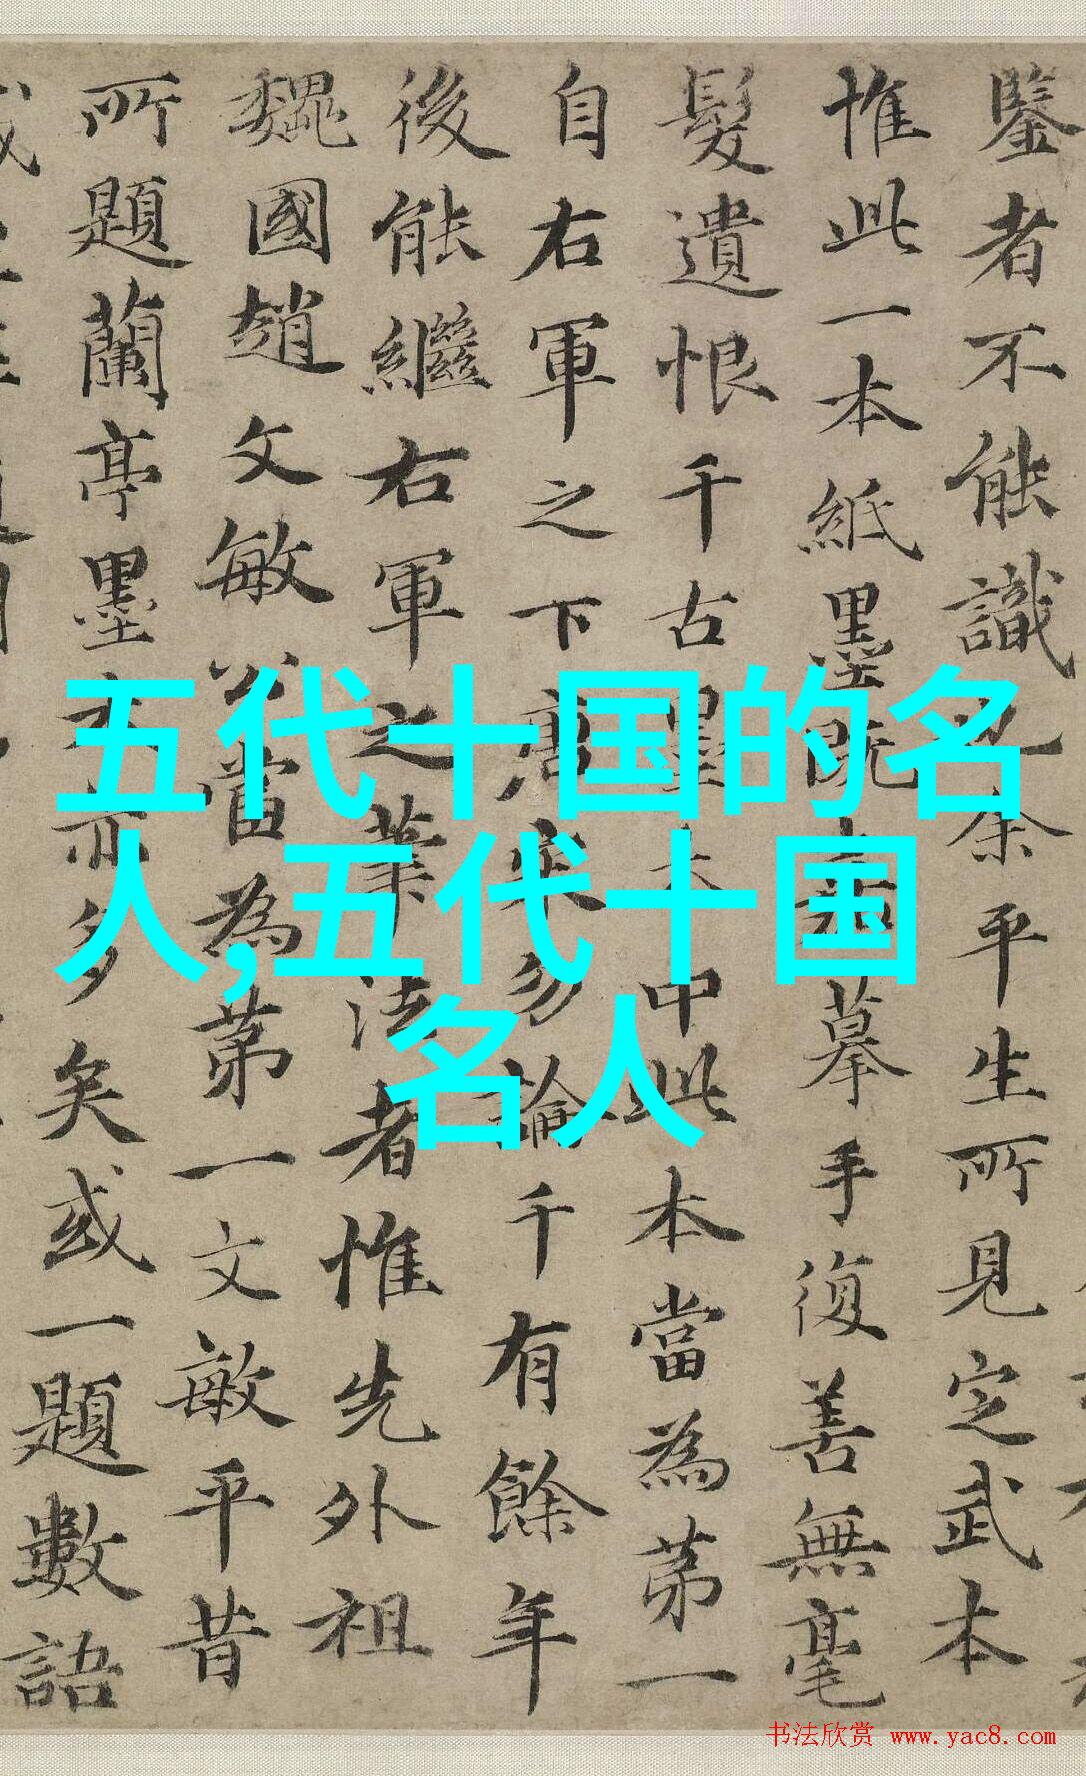 鑒者不能識也余平生所見定武本
惟此一本紙墨既摹手復善無毫
髮遺恨千古墨本中此本當為第一
自右軍之下唐宋勿論千有餘年
後能繼右軍之筆法者惟先外祖
魏國趙文敏公當為第一文敏平昔
所題蘭亭墨本亦多矣或一題數語
五代十国的名
人,五代十国
名人
书法欣赏 www.yac8.com